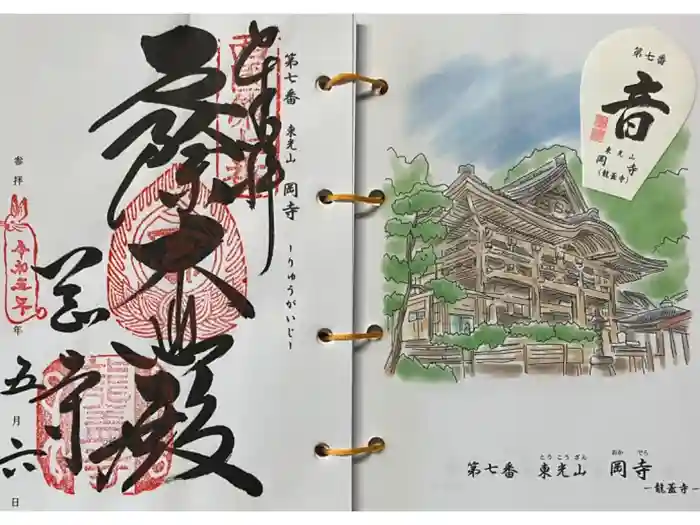 奉拝
第七番 東光山 岡寺
ーりゅうがいじー
大悲殿
岡寺
参拝
令和五年
年
五
月
六
日
第七番
音
東光山
岡寺
(龍蓋寺)
とうこうざん おか でら
第七番 東光山 岡寺
ー龍蓋寺ー